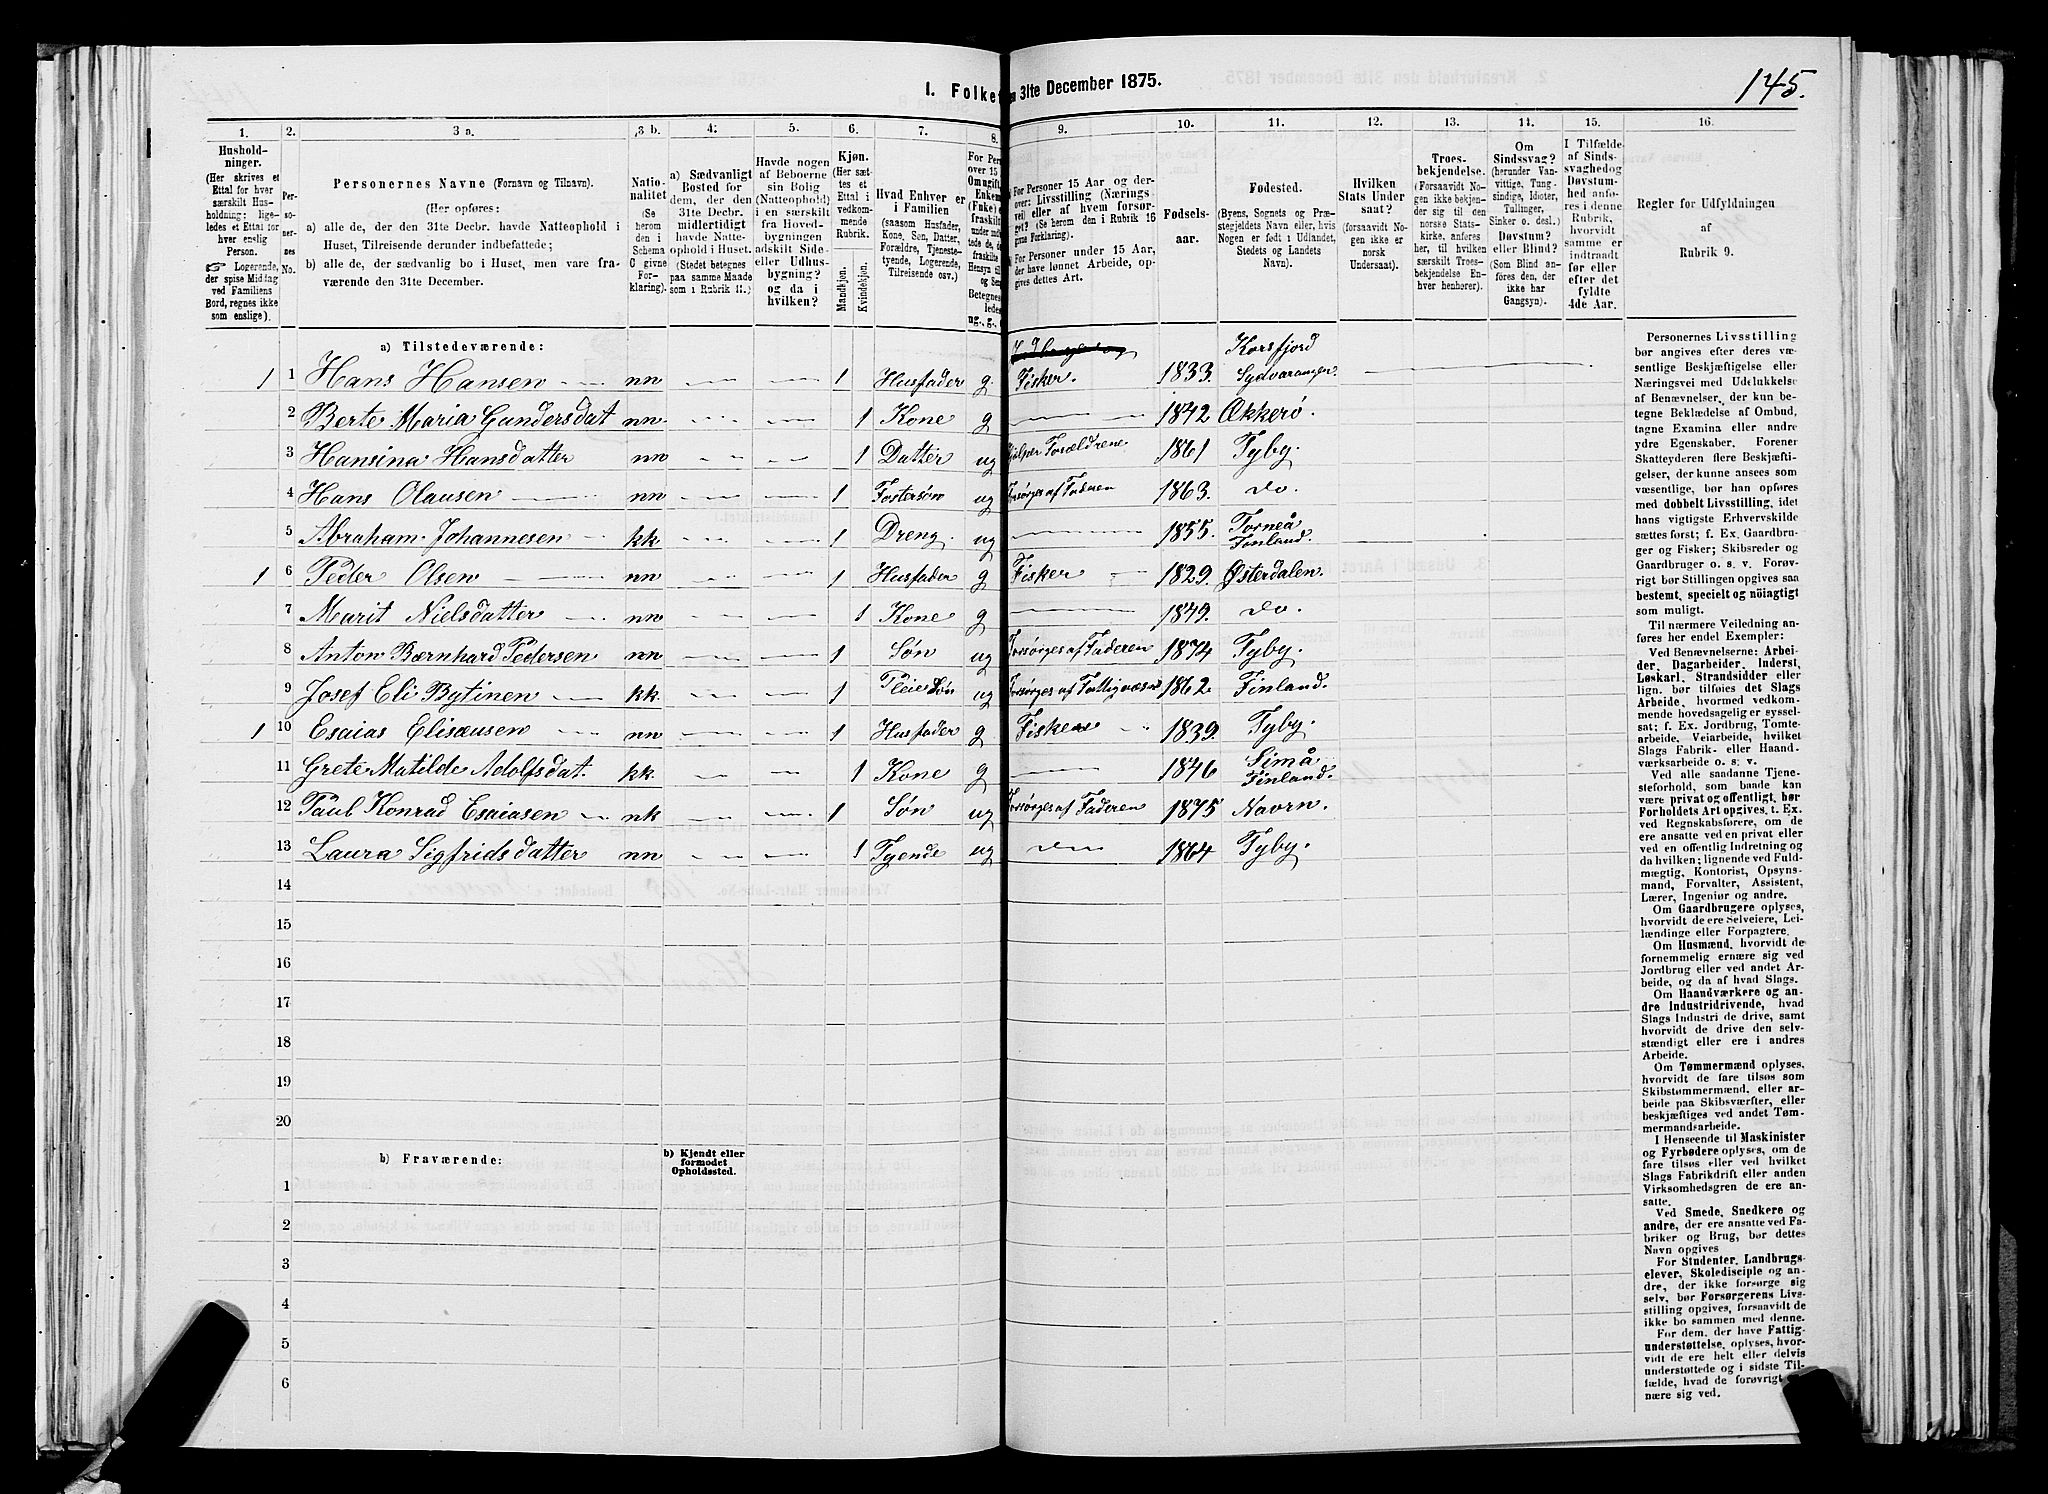 I. Folke
31te December 1875.
145.
1.
2.
3 a.
3 b.
4.
5.
6.
7.
8.
9.
10.
11.
12.
13.
14.
15.
16.
Hushold-
ninger.
(Her skrives et
Ettal for hver
særskilt Hus-
holdning; lige-
ledes et Ettal for
hver enslig
Person.
☞ Logerende,
der spise Middag
ved Familiens
Bord, regnes ikke
som enslige).
Per-
so-
ner-
nes
No.
Personernes Navne (Fornavn og Tilnavn).
(Her opføres:
a) alle de, der den 31te Decbr. havde Natteophold i
Huset, Tilreisende derunder indbefattede;
b) alle de, der sædvanlig bo i Huset, men vare fra-
værende den 31te December.
Natio-
nalitet
(Se
herom
den i
Schema
C givne
For-
klaring).
a) Sædvanligt
Bosted for
dem, der den
31te Decbr.
midlertidigt
havde Natte-
ophold i Huset.
(Stedet betegnes
paa samme Maade
som i Rubrik 11.)
Havde nogen
af Beboerne
sin Bolig
(Natteophold)
i en særskilt
fra Hoved-
bygningen
adskilt Side-
eller Udhus-
bygning?
og da i
hvilken?
Kjøn.
(Her sæt-
tes et
Ettal i
vedkom-
mende
Rubrik.
Mandkjøn.
Kvindekjøn.
Hvad Enhver er
i Familien
(saasom Husfader,
Kone, Søn, Datter,
Forældre, Tjeneste-
tyende, Logerende,
Tilreisende osv.)
For Personer 15 Aar og der-
over: Livsstilling (Nærings
vei) eller af hvem forsør-
get? (Se herom den i Rubrik 16
givne Forklaring).
For Personer under 15 Aar,
der have lønnet Arbeide, op-
gives dettes Art.
Fødsels-
aar.
Fødested.
(Byens, Sognets og Præ-
stegjeldets Navn eller, hvis
Nogen er født i Udlandet,
Stedets og Landets
Navn).
Hvilken
Stats Under
saat?
(forsaavidt No-
gen ikke er
norsk
Undersaat).
Troes-
bekjendelse.
(Forsaavidt No-
gen ikke bekjen-
der sig til den
norske Stats-
kirke, anføres
her, til hvilken
særskilt Troes-
bekjendelse En-
hver henhører).
Om
Sindssvag?
(herunder Van-
vittige, Tung-
sindige, Idioter,
Tullinger,
Sinker o. desl.)
Døvstum?
eller Blind?
(Som Blind an-
føres den, der
ikke har
Gangsyn).
I Tilfælde
af Sinds-
svaghed og
Døvstum-
hed anfø-
res i denne
Rubrik,
hvorvidt
samme er
indtraadt
før eller
efter det
fyldte
4de Aar.
Regler for Udfyldningen
af
Rubrik 9.
a) Tilstedeværende:
1 1 Hans Hansen nn 1 Husfader g Fisker. 1833. Korsfjord Sydvaranger.
2 Berte Maria Gundersdat nn. 1 Kone g 1842 Ekkerø.
3 Hansina Hansdatter nn 1 Datter ug Hjelper Forældrene. 1861 Tyby.
4 Hans Olausen nn 1 Fostersøn ug Forsørges af Faderen 1863. do.
5 Abraham Johannesen kk 1 Dreng. ug 1855. Torneå Finland.
1 6 Peder Olsen nn 1 Husfader g Fisker 1829. Østerdalen.
7 Marit Nielsdatter nn 1 Kone g 1849. do.
8 Anton Bærnhard Pedersen nn 1 Søn ug Forsørges af Faderen 1874 Tyby.
9 Josef Eli Bytinen kk 1 Pleie Søn ug Forsørges af Fattigvæsnet 1862. Finland.
1 10 Esaias Elisæusen nn 1 Husfader g Fisker 1839. Tyby.
11 Grete Matilde Adolfsdat. kk 1 Kone g 1846 Simå Finland.
12 Paul Konrad Esaiasen nk 1 Søn ug Forsørges af Faderen 1875 Navrn.
13 Laura Sigfridsdatter nn 1 Tyende ug do 1864 Tyby.
14
15
16
17
18
19
20
b) Fraværende:
b) Kjendt eller
formodet
Opholdssted.
1
2
3
4
5
6
Personernes Livsstilling
bør angives efter deres væ-
sentlige Beskjæftigelse eller
Næringsvei med Udelukkelse
af Benævnelser, der kun be-
tegne Beklædelse af Ombud,
tagne Examina eller andre
ydre Egenskaber. Forener
Skatteyderen flere Beskjæfti-
gelser, der kunne ansees som
væsentlige, bør han opføres
med dobbelt Livsstilling, idet
hans vigtigste Erhvervskilde
sættes først; f. Ex. Gaardbru-
ger og Fisker; Skibsreder og
Gaardbruger o. s. v. Forøv-
rigt bør Stillingen opgives saa
bestemt, specielt og nöiagtigt
som muligt.
Til nærmere Veiledning an-
føres her endel Exempler:
Ved Benævnelserne: Arbei-
der, Dagarbeider, Inderst,
Løskarl, Strandsidder eller
lign. bør tilføies det Slags
Arbeide, hvormed vedkom-
mende hovedsagelig er syssel-
sat; f. Ex. Jordbrug, Tomte-
arbeide, Veiarbeide, hvilket
Slags Fabrik- eller Haand-
værksarbeide o. s. v.
Ved alle saadanne Tjene-
steforhold, som baade kan
være privat og offentligt, bør
Forholdets Art opgives, t. Ex.
ved Regnskabsførere, om de
ere ansatte ved en privat eller
ved en offentlig Indretning og
da hvilken; lignende ved Fuld-
mægtig, Kontorist, Opsyns-
mand, Forvalter, Assistent,
Lærer, Ingeniør og andre.
Om Gaardbrugere oplyses,
hvorvidt de ere Selveiere, Lei-
lændinge eller Forpagtere.
Om Husmænd, hvorvidt de
fornemmelig ernære sig ved
Jordbrug eller ved andet Ar-
beide, og da af hvad Slags.
Om Haandværkere og an-
dre Industridrivende, hvad
Slags Industri de drive, samt
hvorvidt de drive den selv-
stændigt eller ere i andres
Arbeide.
Om Tømmermænd oplyses,
hvorvidt de fare tilsøs som
Skibstømmermænd, eller ar-
beide paa Skibsværfter, eller
beskjæftiges ved andet Tøm-
mermandsarbeide.
I Henseende til Maskinister
og Fyrbødere oplyses, om de
fare tilsøs eller ved hvilket
Slags Fabrikdrift eller anden
Virksomhedsgren de ere an-
satte.
Ved Smede, Snedkere og
andre, der ere ansatte ved Fa-
briker og Brug, bør dettes
Navn opgives
For Studenter, Landbrugs-
elever, Skoledisciple og an-
dre, der ikke forsørge sig
selv, bør Forsørgerens Livs-
stilling opgives, forsaavidt de
ikke bo sammen med denne.
For dem, der have Fattig-
understøttelse, oplyses, hvor-
vidt de ere helt eller delvis
understøttede og i sidste Til-
fælde, hvad de forøvrigt
nære sig ved.